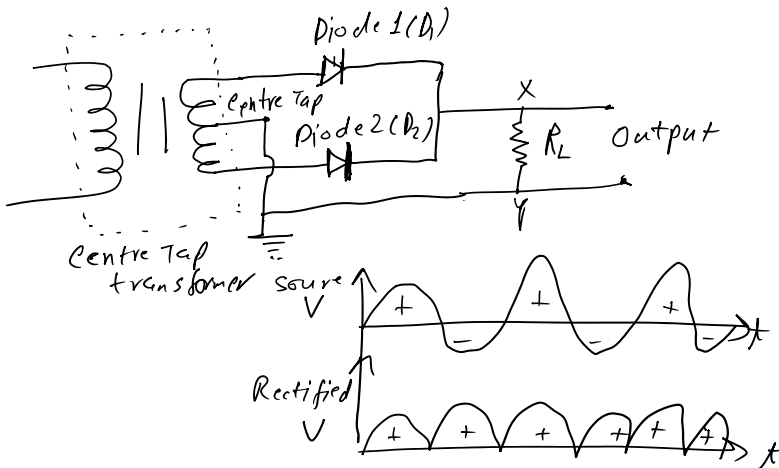 Diode 1 (D₁)
Centre Tap
Diode 2 (D₂)
X
R_L
Output
Y
Centre Tap
transformer
source
V
+ - + - + -
t
Rectified
V
+ + + + + +
t